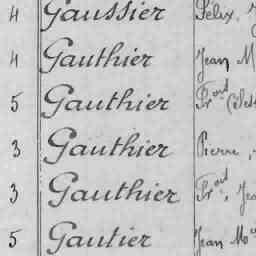 4 Gaussier Félix,
4 Gauthier Jean M
5 Gauthier Fr^ois
3 Gauthier Pierre,
3 Gauthier Fr^ois, Jea
5 Gautier Jean M